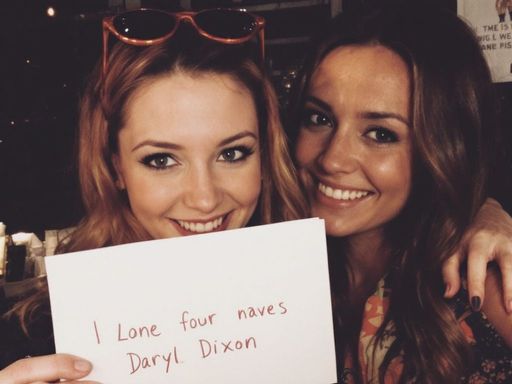 THE IS
WIG I. WE
ANE PIS
I Lone four naves
Daryl Dixon